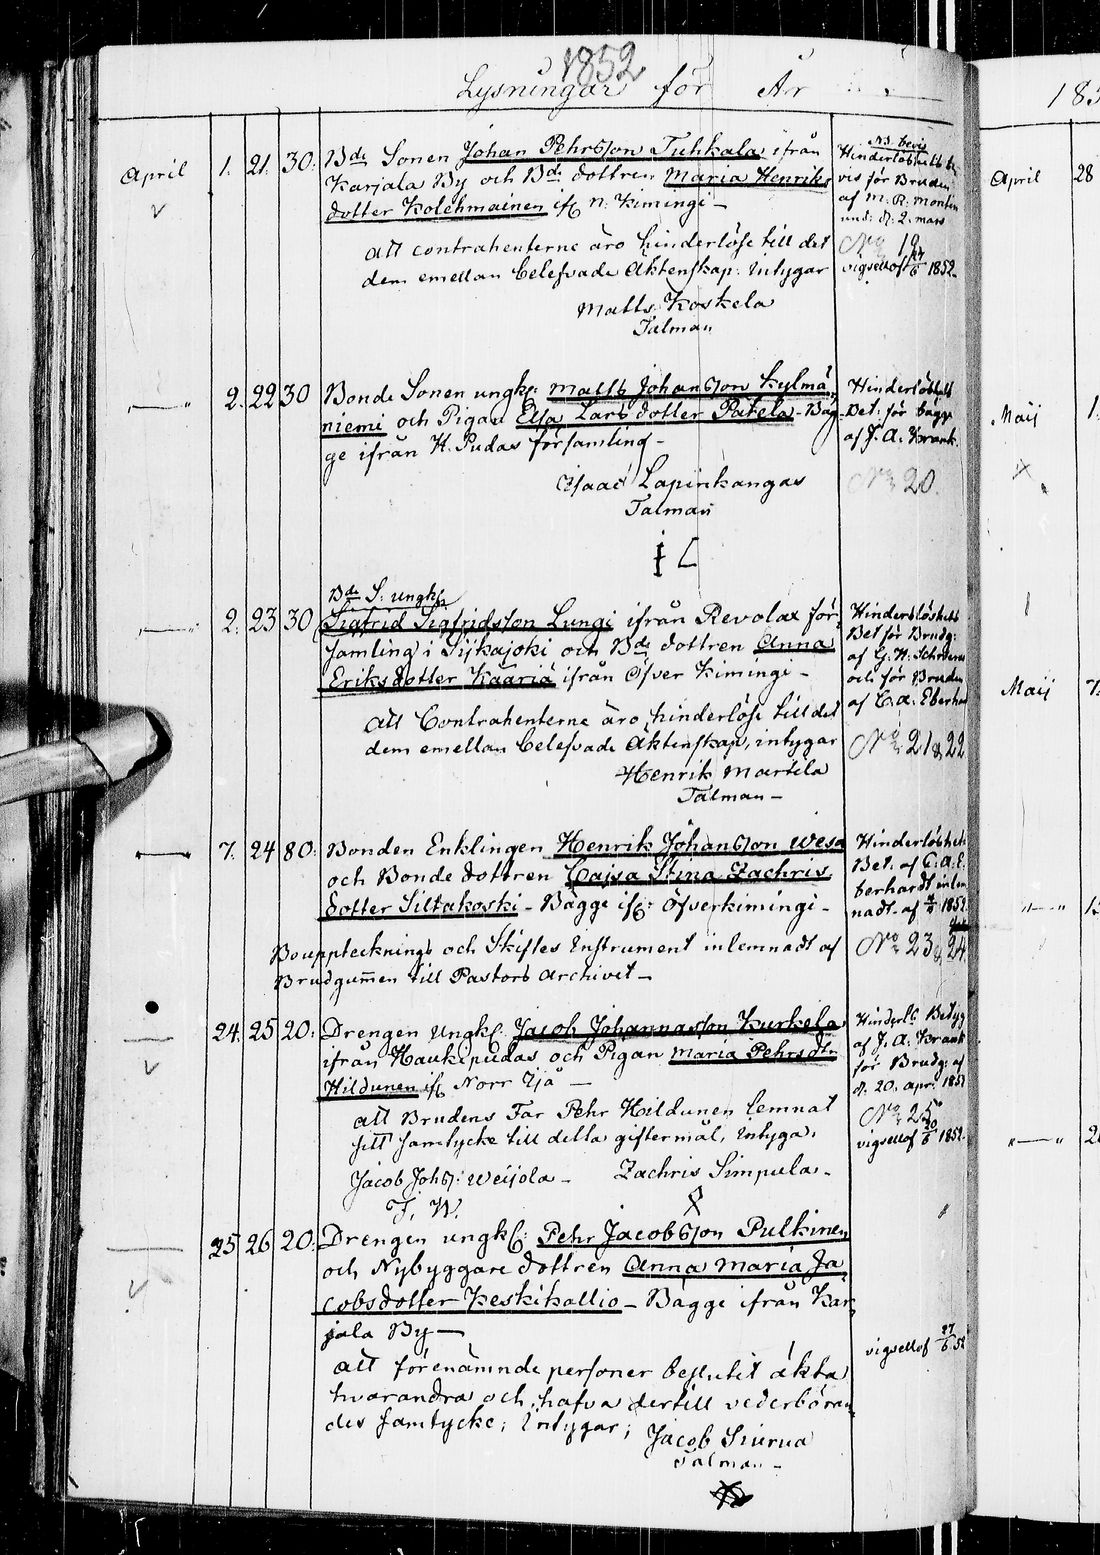 1852
Lysningar för År
April 1. 21. 30. Bde Sonen Johan Pehrsson Tuhkala ifrån
Karjala By och Bde dottren Maria Henriks
dotter Kolehmainen ifr. N. Kimingi –
att contrahenterne äro hinderlöse till det
dem emellan belefvade Äktenskap. intygar
Matts Koskela
Talman
Hinderlöshets be
vis för Bruden
af M. R. Montin
und: d. 2. mars
No 19
vigsell af 27/6 1852.
–"– 2. 22 30 Bonde Sonen ungk: Matts Johansson Kylmä
niemi och Pigan Elsa Lars dotter Patela – Bäg-
ge ifrån H. Pudas församling –
Isaac Lapinkangas
Talman
Hinderlöshets
Bet: för bägge
af J. A. Krank.
No 20.
Bde S: ungk:
–"– 2. 23 30 Sigfrid Sigfridsson Lungi ifrån Revolax för-
samling i Sijkajoki och Bde dottren Anna
Eriksdotter Kääriä ifrån Öfver Kimingi –
att Contrahenterne äro hinderlöse till det
dem emellan belefvade Äktenskap, intygar
Henrik Martela
Talman –
Hinderslöshets
Bet för Brudg:
af G. W.
och för Bruden
af C. A. Eberhar
No 21 & 22
–"– 7. 24 80. Bonden Enklingen Henrik Johansson Wesa
och Bonde dottren Cajsa Stina Zachris
dotter Siltakoski – Bägge ifr: Öfverkimingi –
Bouppteckning och Skiftes Instrument inlemnadt af
Brudgummen till Pastors Archivet –
Hinderlöshets
Bet. af C. A. E.
berhardt inlem
nadt af 1852
No 23 & 24
24. 25 20. Drengen Ungk: Jacob Johannasson Kurkela
ifrån Haukipudas och Pigan Maria Pehrsdtr
Hildunen ifr. Norr Ijå –
att Brudens Far Pehr Hildunen lemnat
sitt samtycke till detta giftermål, Intyga.
Jacob Johss: Weijola – Zachris Simpula –
F. W.
Hinderls Betyg
af J. A. Krank
för Brudg: af
d. 20. apr. 1852
No 25
vigsell af 20/6 1852.
25 26 20. Drengen ungk: Pehr Jacobsson Pulkinen
och Nybyggare dottren Anna Maria Ja
cobsdotter Keskikallio – Bägge ifrån Kar
jala By –
att förenämnde personer beslutit äkta
hvarandra och hafva dertill vederböran
des samtycke; Intygar;
Jacob Siurua
Talman –
vigsell af 27/6 52
185
April 28
Maij 1.
Maij 7.
–"– 1
–"– 2